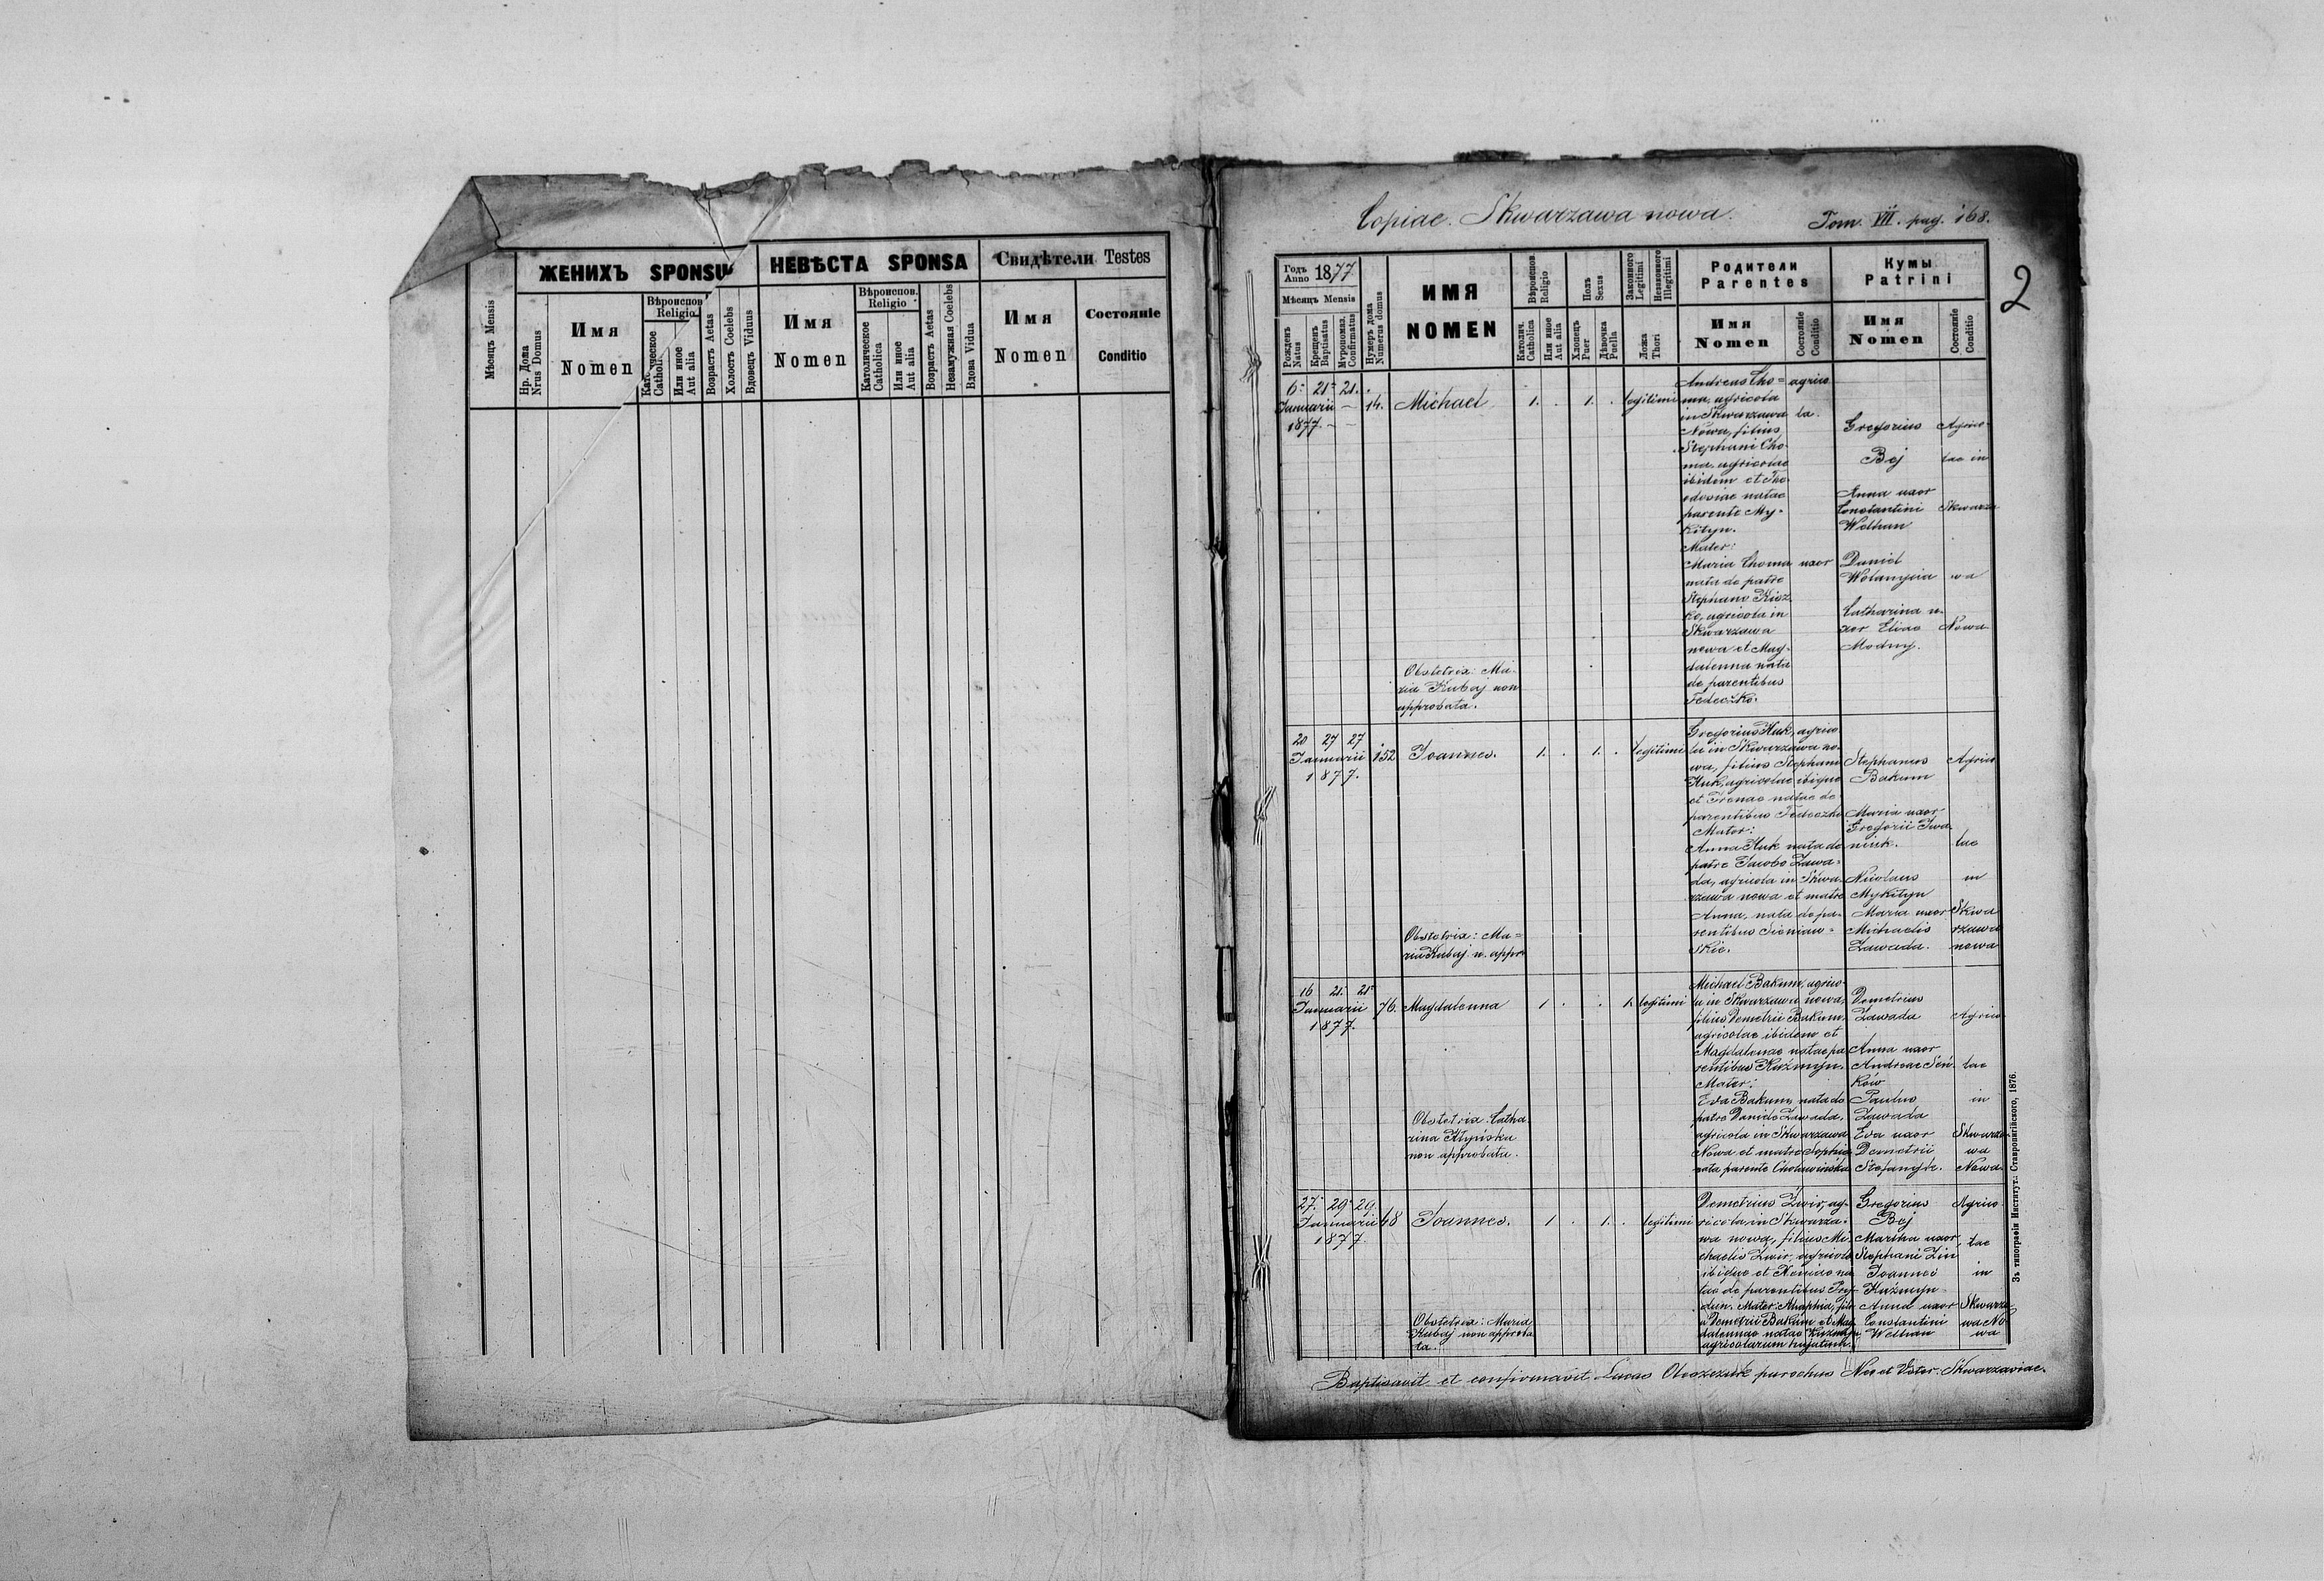 ЖЕНИХЪ SPONSU
НЕВѢСТА SPONSA
Свидѣтели Testes
Мѣсяцъ Mensis
Нр. Дома
Nrus Domus
Имя
Nomen
Вѣроиспов
Religio
Catholi
Или иное
Aut alia
Возрастъ Aetas
Холостъ Coelebs
Вдовецъ Viduus
Имя
Nomen
Вѣроиспов.
Religio
Католическое
Catholica
Или иное
Aut alia
Возрастъ Aetas
Незамужная Coelebs
Вдова Vidua
Имя
Nomen
Состояніе
Conditio
Copiae. Skwarzawa nowa.
Tom. VII. pag. 168.
2
Годъ
Anno 1877
Мѣсяцъ Mensis
Рожденъ
Natus
Крещенъ
Baptisatus
Муропомаз.
Confirmatus
Нумеръ дома
Numerus domus
ИМЯ
NOMEN
Вѣроиспов.
Religio
Католич.
Catholica
Или иное
Aut alia
Полъ
Sexus
Хлопецъ
Puer
Дѣвочка
Puella
Законного
Legitimi
Незаконного
Illegitimi
Ложа
Thori
Родители
Parentes
Имя
Nomen
Состояніе
Conditio
Кумы
Patrini
Имя
Nomen
Состояніе
Conditio
6. 21. 21.
Januarii
1877
14.
Michael
1. 1.
legitimi
Andreas Cho=
ma, agricola
in Skwarzawa
Nowa, filius
Stephani Cho
ma agricolae
ibidem et The
odosiae natae
parente My-
kityn.
Mater:
Maria Choma
nata de patre
Stephano Kisz
ko, agricola in
Skwarzawa
nowa et Mag-
dalenna nata
de parentibus
Fedeczko.
agrico
la.
uxor
Gregorius
Bej
Anna uxor
Constantini
Welhan
Daniel
Catharina u-
xor Eliae
Modny.
Agrico-
lae in
Skwarza
wa
Nowa
Obstetrix: Ma-
ria Kubaj non
approbata.
20 27 27
Januarii
1877.
152
Joannes.
1. 1.
legitimi
Gregorius Huk, agrico
la in Skwarzawa no-
wa, filius Stephani
Huk, agricolae ibique
et Irenae natae de
parentibus Fedeczko
Mater:
Anna Huk nata de
patre Jacobo Zawa-
da, agricola in Skwa-
rzawa nowa et matre
Anna, nata de pa-
rentibus Sieniaw=
skie.
Stephanus
Bakum
Maria uxor
Gregorii Iwa
niuk.
Nicolaus
Mykityn
Maria uxor
Michaelis
Zawada.
Agrico
lae
in
Skwa
rzawa
nowa
Obstetrix: Ma=
ria Kubaj n. appr.
16 21. 21
Januarii
1877.
76.
Magdalenna
1 1.
legitimi
Michael Bakum, agrico-
la in Skwarzawa nowa,
filius Demetrii Bakum,
agricolae ibidem et
Magdalenae natae pa
rentibus Kuźmyn.
Mater:
Eva Bakum, nata de
patre Daniele Zawada,
agricola in Skwarzawa
Nowa et matre Sophia
nata parente Cholawińska
Demetrius
Zawada
Anna uxor
Andreae Sen-
ków
Paulus
Zawada
Eva uxor
Demetrii
Stefanyk.
Agrico
lae
in
Skwarza
wa
Nowa.
Obstetrix: Catha
rina
non approbata.
27. 29. 29.
Januarii
1877.
68
Joannes.
1. 1.
legitimi
Demetrius Zwir, ag-
ricola, in Skwarza-
wa nowa, filius Mi-
chaelis Zwir, agricola
ibidae et Xeniae na
tae de parentibus Pry-
dun. Mater: Ahaphia, fili
a Demetrii Bakum et Mag
dalennae natae Kuzmyn,
agricolarum hujatium.
Gregorius
Bej
Martha uxor
Stephani
Joannes
Kuźmyn
Anna uxor
Constantini
Welhan
Agrico
lae
in
Skwarza
wa No
wa
Obstetrix: Maria
Kubaj non approba
ta.
Baptisavit et confirmavit Lucas parochus Neo et Veter. Skwarzaviae.
Зъ типографіи Институт. Ставропигійского, 1876.